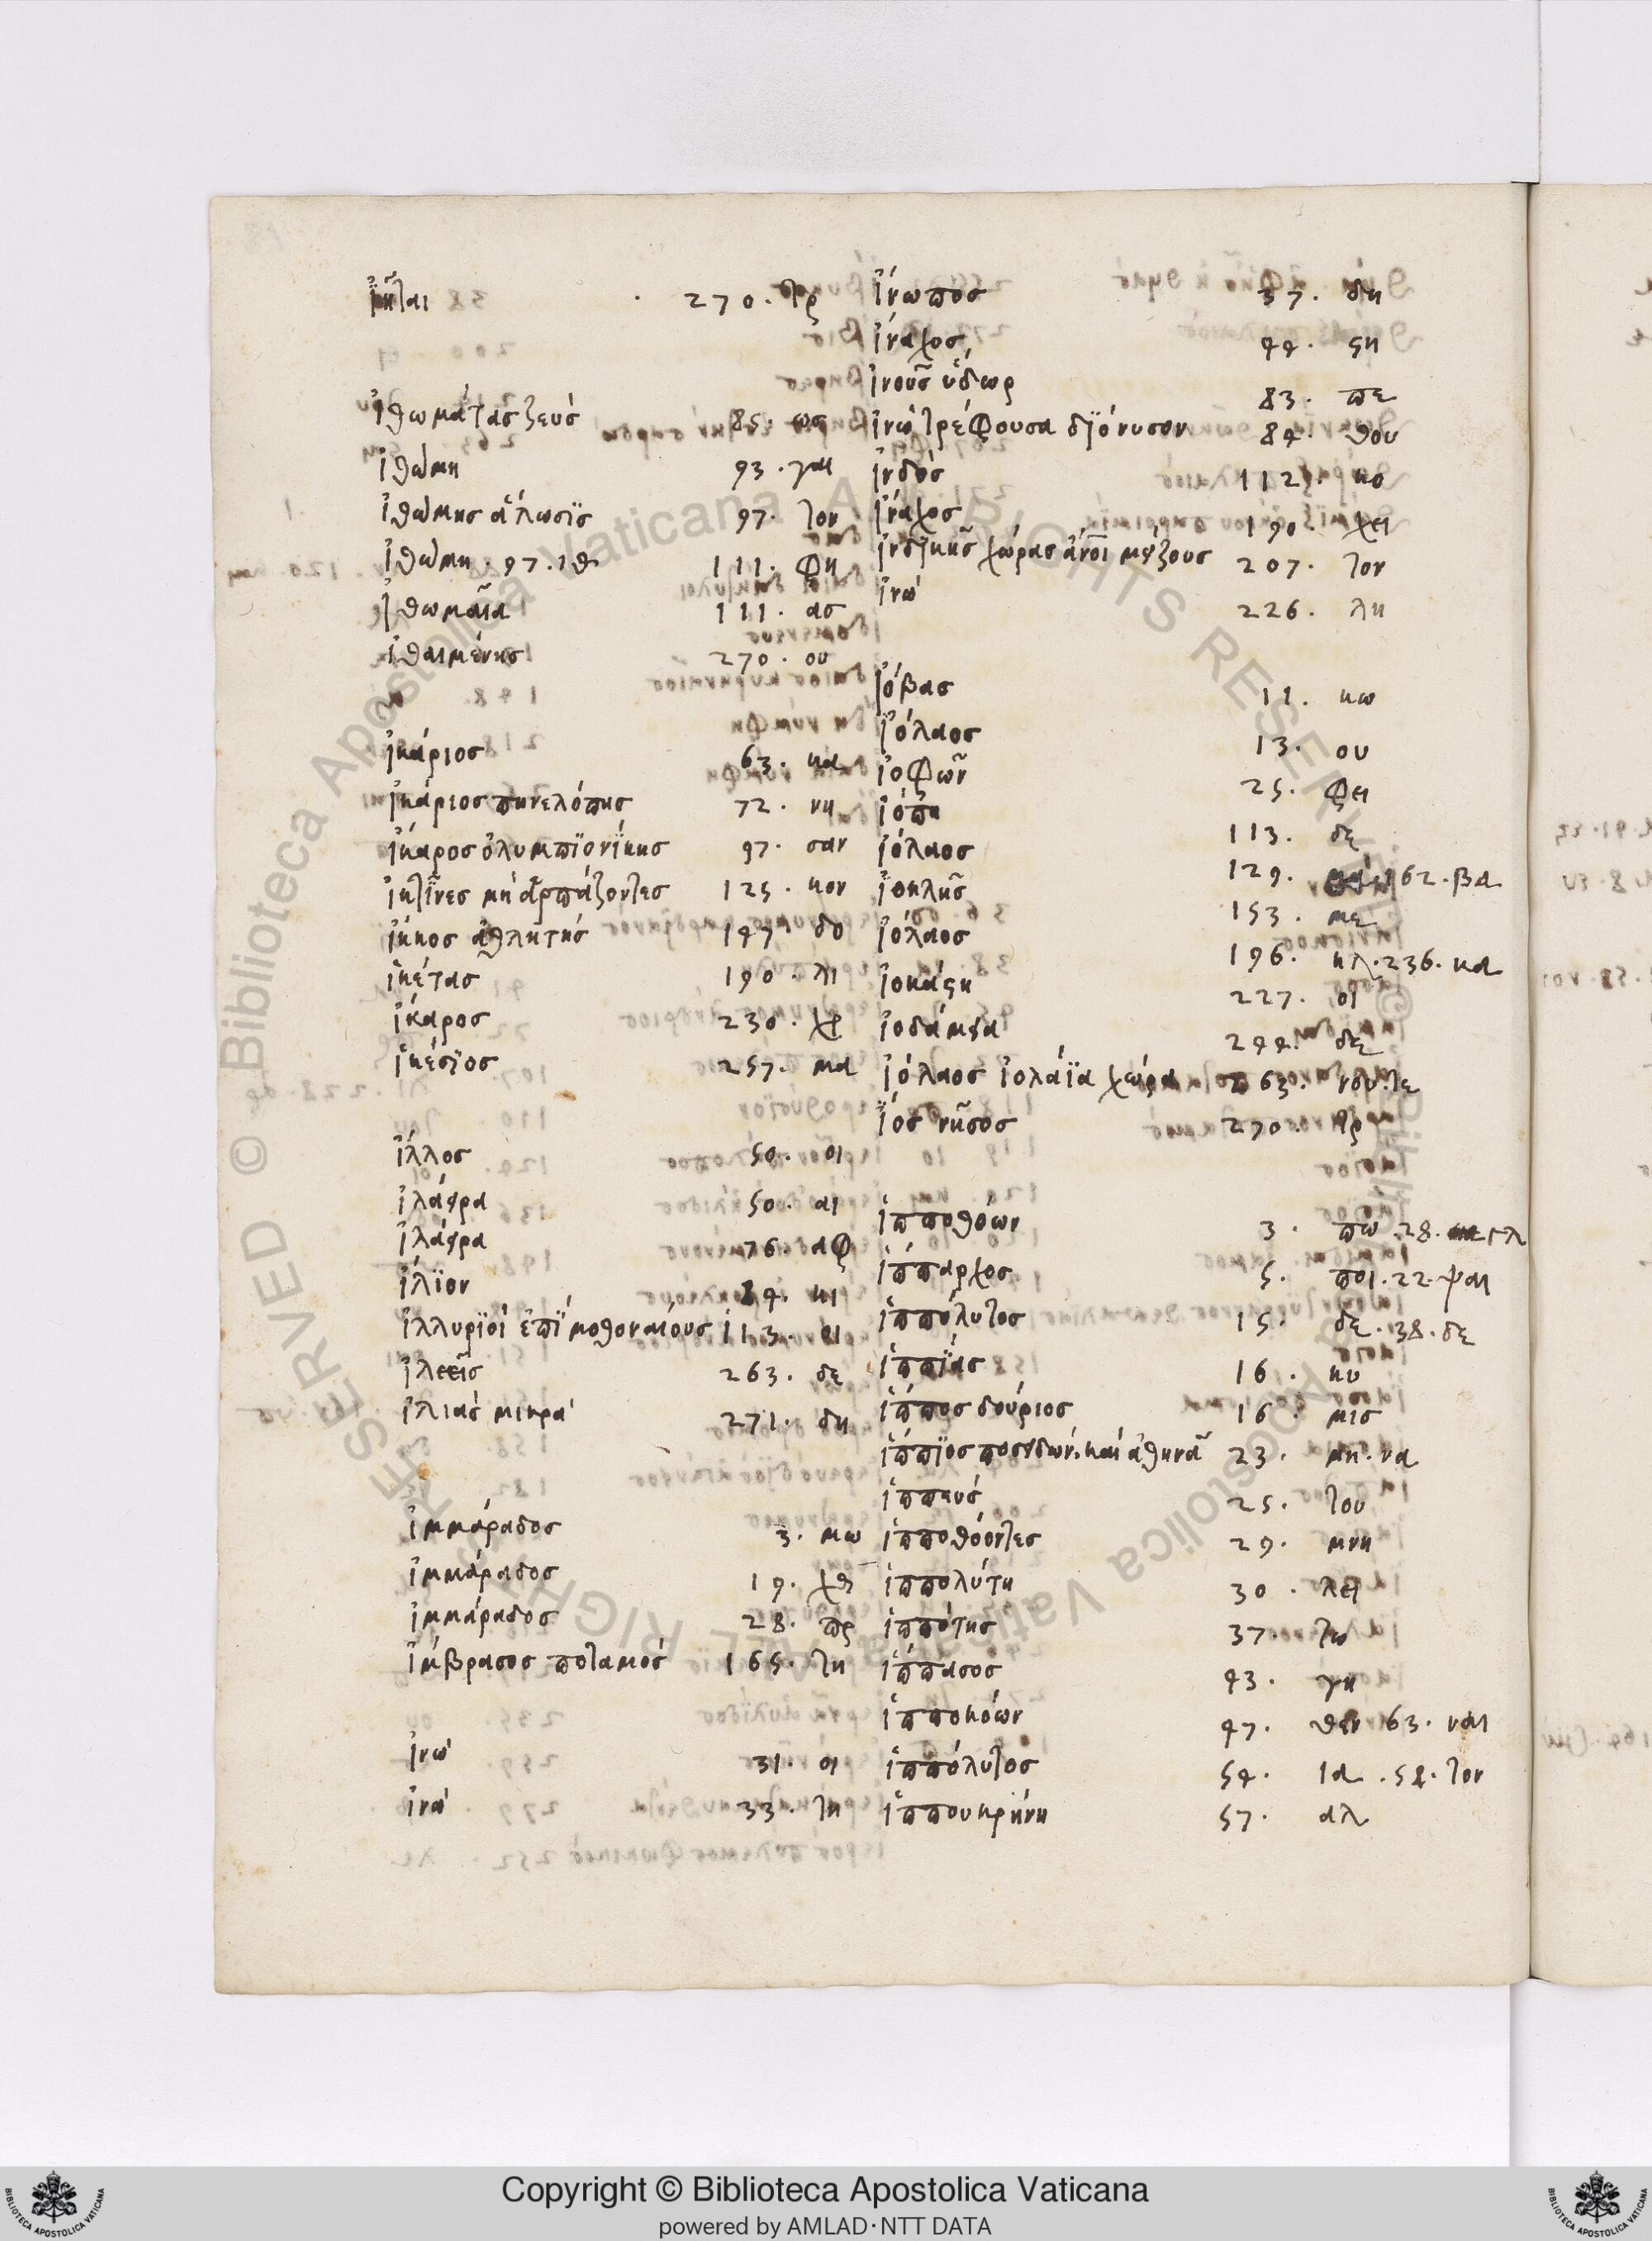 ἰῆται · 270. τρ
ἰθωμάτας ζευς 85. ως
ἰθώμη 93. γαι
ἰθώμης ἅλωσϊς 97. τον
ἰθώμη . 97. ιθ 111. φη
ἰθωμαῖα 111. ασ
ἰθαιμένης 270. ου
ἰκάριος 63. κα
ἰκάριος πηνελόπης 72. νη
ἴκαρος ὀλυμπϊονίκης 97. σαν
ἰκτῖνες μὴ ἁρπάζοντες 125. κον
ἴκκος ἀθλητής 147. δο
ἱκέτας 190. λι
ἴκαρος 230. χρ
ἱκέσϊος 257. μα
ἴλλος 50. οι
ἰλάειρα 50. αι
ἰλάειρα 76. αφ
ἴλϊον 84. κι
ἰλλυρϊοὶ ἐπὶ μοθοναίους 113. οι
ἰλεεῖς 263. δε
ἰλιὰς μικρὰ 271. δη
ἰμμάραδος 3. μω
ἰμμάραδος 19. χθ
ἰμμάραδος 28. πρ
ἴμβρασος ποταμός 165. τη
ἰνώ 31. οι
ἰνώ 33. τη
ἰνωπος 37. δη
ἴναχος 44. ση
ἰνοῦς ὕδωρ 83. πε
ἰνὼ τρέφουσα δϊόνυσον 84. θου
ἰνδός 112. κο
ἴναχος 190. χει
ἰνδϊκῆς χώρας ἄνοι μείζους 207. τον
ἰνώ 226. λη
ἰόβας 11. κω
ἰόλαος 13. ου
ἰοφῶν 25. φει
ἰόπη 113. δε
ἰόλαος 129. 162. βα
ἰοκλῆς 153. με
ἰόλαος 196. κλ. 236. κα
ἰοκάστη 227. οι
ἰοδάμεια 244. δε
ἰόλαος ἰολάϊα χώρα 263. νου. τε
ἴος νῆσος 270. τρ
ἱπποθόων 3. πω. 28. γλ
ἵππαρχος 5. ποι. 22. ψαι
ἱππόλυτος 15. δε. 38. δε
ἱππϊας 16. κυ
ἵππος δούριος 16. μισ
ἵππϊος ποσειδών. καὶ ἀθηνᾶ 23. μη. να
ἱππευς 25. του
ἱπποθόοντες 29. μνη
ἱππολύτη 30. λει
ἱππότης 37. τω
ἵππασος 43. γη
ἱπποκόων 47. θεν 63. ναι
ἱππόλυτος 54. ια. 58. τον
ἱππουκρήνη 57. αλ
Copyright © Biblioteca Apostolica Vaticana
powered by AMLAD·NTT DATA